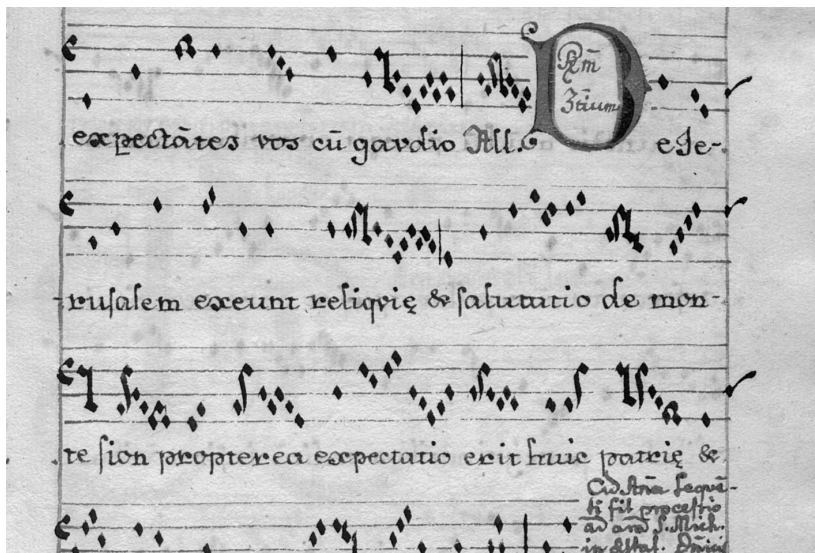 expectātes vos cū gavdio All. D e Je-
rusalem exeunt reliqvię & salututio de mon-
te sion propterea expectatio erit huic patrię &
Cū Añā sequē-
ti fit processio
ad arā S. Mich.